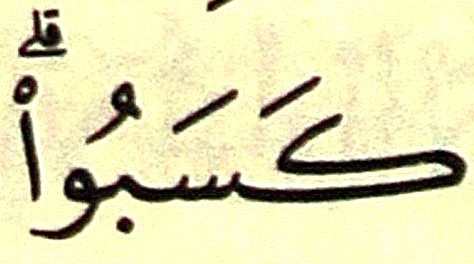 كَسَبُوا۟ۗ